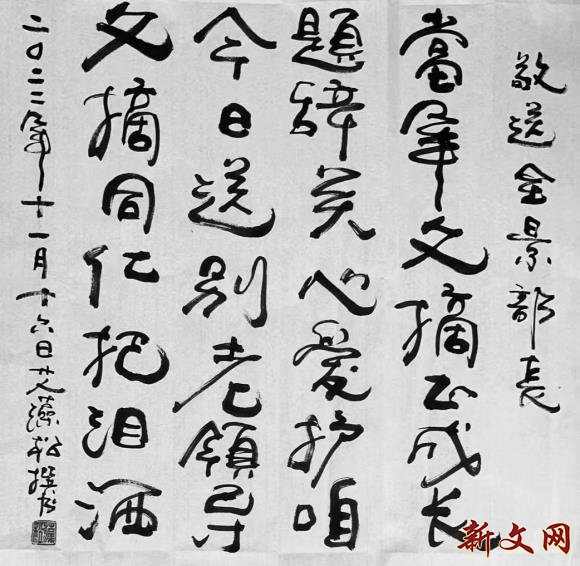 敬送金景部長
當年文摘正成长
題辞关心愛护咱
今日送别老領导
文摘同仁把泪洒
二〇二二年十一月十六日艾松撰书
新文网